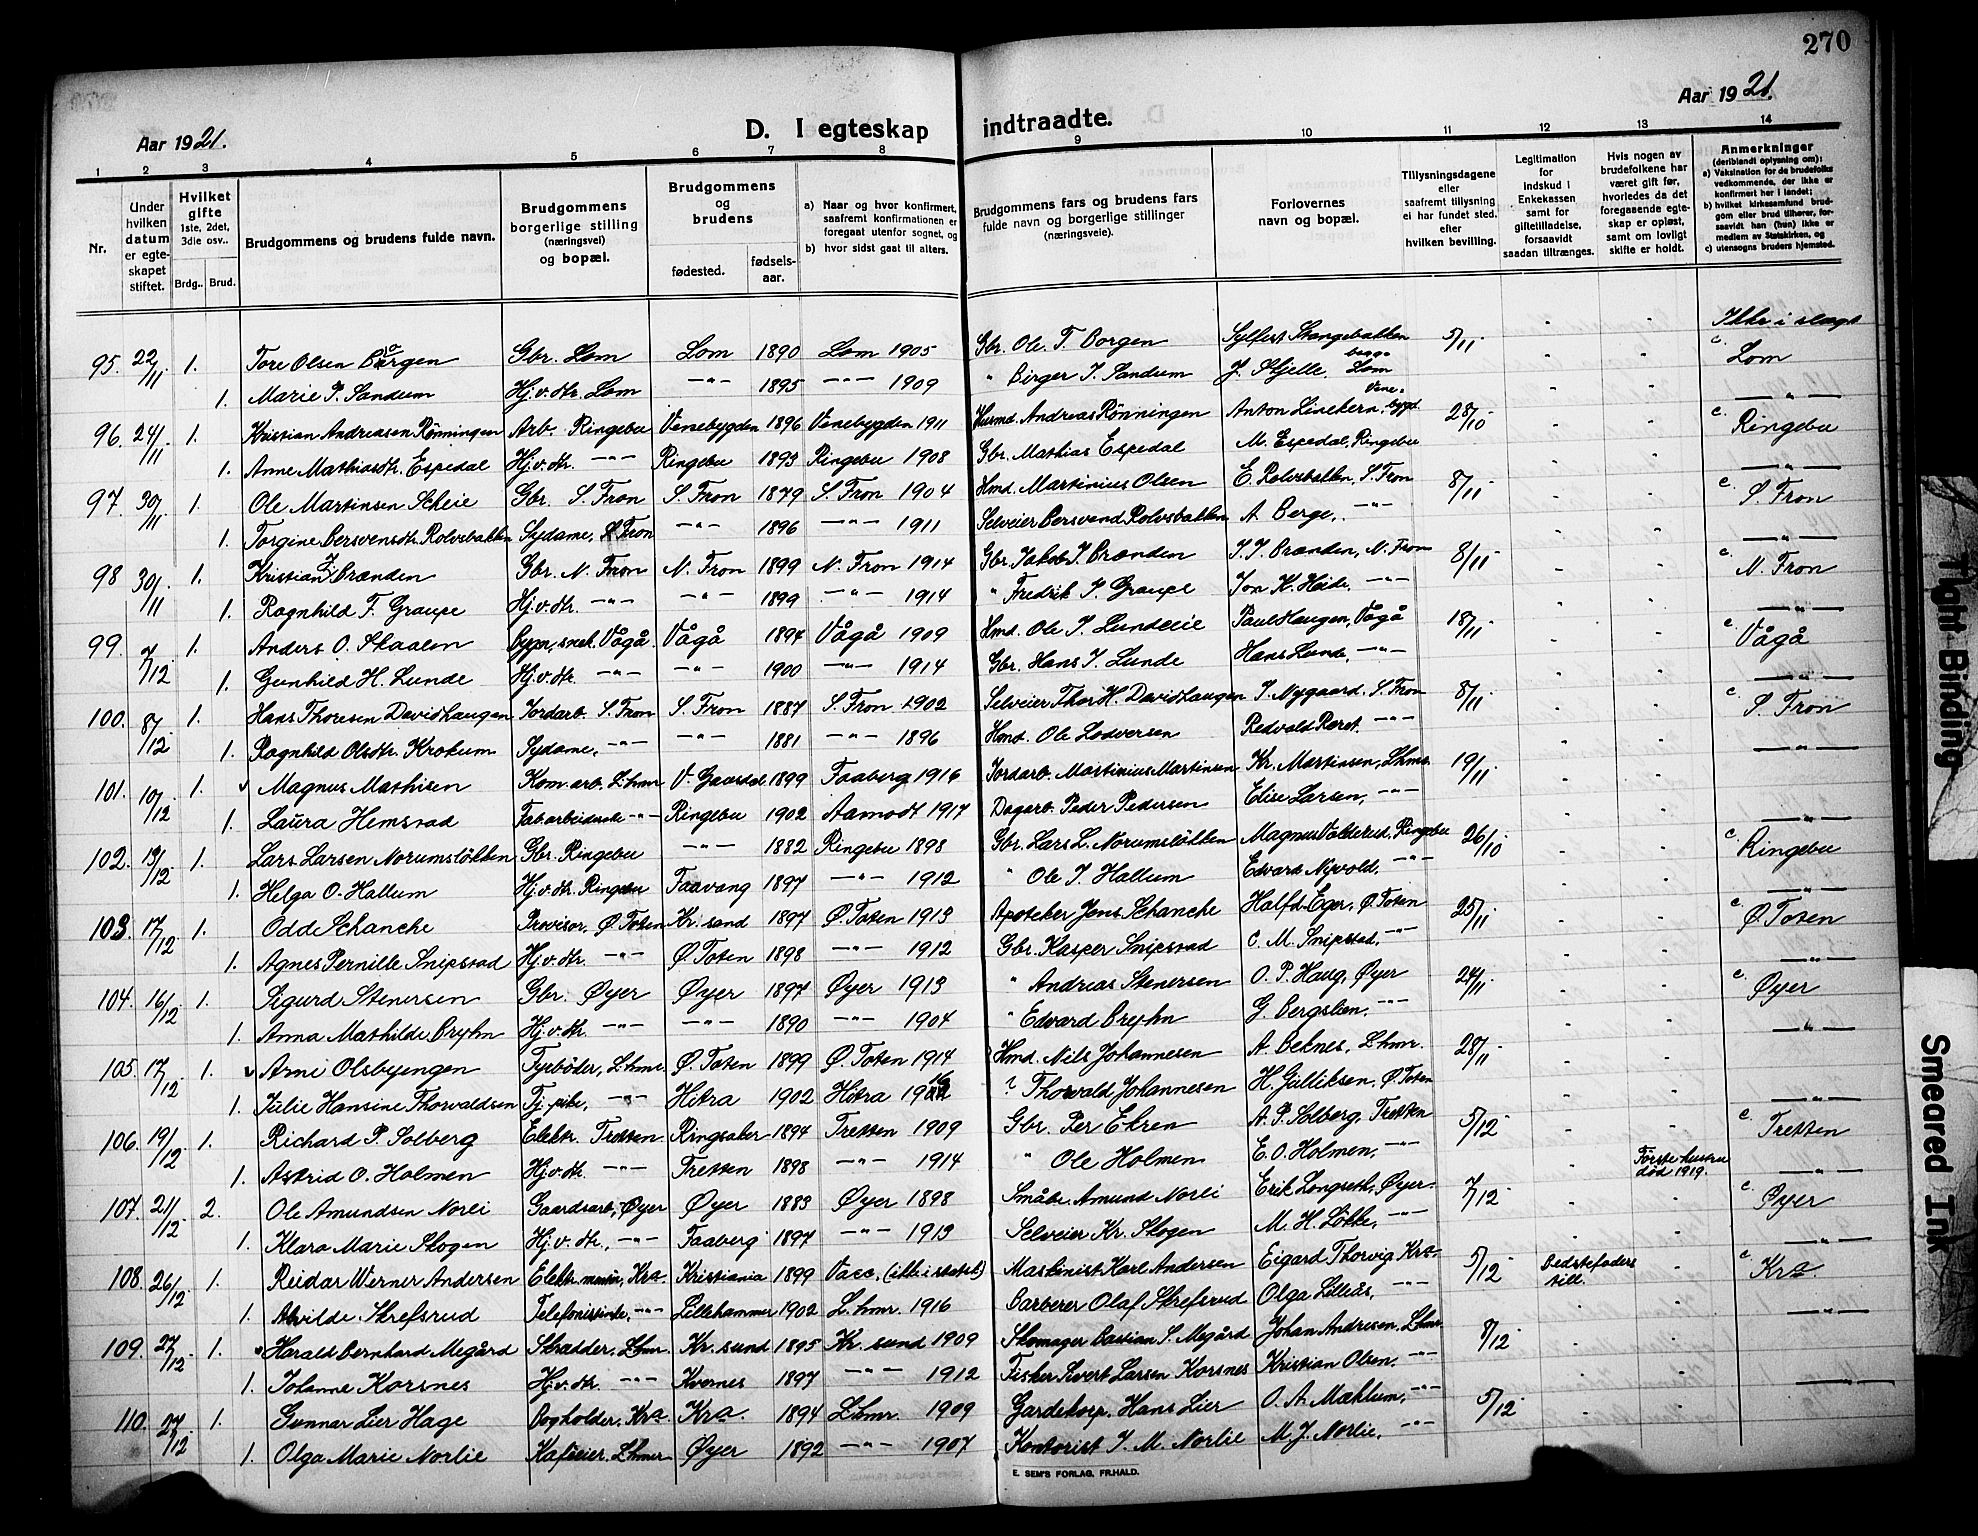 270
Aar 1921.
D. I egteskap indtraadte.
Aar 1921.
1 2 3 4 5 6 7 8 9 10 11 12 13 14
Nr.
Under hvilken datum er egteskapet stiftet.
Hvilket gifte 1ste, 2det, 3die osv..
Brdg.. Brud.
Brudgommens og brudens fulde navn.
Brudgommens borgerlige stilling (næringsvei) og bopæl.
Brudgommens og brudens
fødested. fødselsaar.
a) Naar og hvor konfirmert, saafremt konfirmationen er foregaat utenfor sognet, og
b) hvor sidst gaat til alters.
Brudgommens fars og brudens fars fulde navn og borgerlige stillinger (næringsveie).
Forlovernes navn og bopæl.
Tillysningsdagene eller saafremt tillysning ei har fundet sted, efter hvilken bevilling.
Legitimation for indskud i Enkekassen samt for giftetilladelse, forsaavidt saadan tiltrænges.
Hvis nogen av brudefolkene har været gift før, hvorledes da det foregaaende egteskap er opløst, samt om lovligt skifte er holdt.
Anmerkninger (deriblandt oplysning om):
a) Vaksination for de brudefolks vedkommende, der ikke er konfirmert her i landet;
b) hvilket kirkesamfund brudgom eller brud tilhører, forsaavidt han (hun) ikke er medlem av Statskirken, og
c) utensogns bruders hjemsted.
95. 22/11 1. Tore Olsen Borgen Gbr. Lom Lom 1890 Lom 1905 Gbr. Ole T. Borgen Sylfest Stangebakken 5/11 - - Ikke i slegt c. Lom
1. Marie P. Sandum Hj.v.dtr. Lom -"- 1895 -"- 1909 " Birger I. Sandum J. Skjelle. begge Lom - - -"-
96. 24/11 1. Kristian Andreasen Rønningen Arb. Ringebu Venebygden 1896 Venebygden 1911 Husmd. Andreas Rønningen Anton Linekern, Venebygd. 28/10 - - c. Ringebu
1. Anne Mathiasdtr. Espedal Hj.v.dtr. -"- Ringebu 1893 Ringebu 1908 Gbr. Mathias Espedal M. Espedal, Ringebu - - -"-
97. 30/11 1. Ole Martinsen Scheie Gbr. S. Fron S. Fron 1879 S. Fron 1904 Hmd. Martinius Olsen E. Rolvsbakken, S. Fron 8/11 - - c. S. Fron
1. Torgine Bersvensdtr. Rolvsbakken Sydame, S. Fron -"- 1896 -"- 1911 Selveier Bersvend Rolvsbakken A. Berge, -"- - - -"-
98 30/11 1. Kristian J. Brænden Gbr. N. Fron N. Fron 1899 N. Fron 1914 Gbr. Jakob J. Brænden J. J. Brænden, N. Fron 8/11 - - c. N. Fron
1. Ragnhild F. Graupe Hj.v.dtr. -"- -"- 1899 -"- 1914 " Fredrik P. Graupe Jon K. Heide. -"- - - -"-
99. 7/12 1. Anders O. Skaalen Bygn.sned. Vågå Vågå 1894 Vågå 1909 Hmd. Ole I. Lundeeie Paul Haugen, Vågå 18/11 - - c. Vågå
1. Gunhild H. Lunde Hj.v.dtr. -"- -"- 1900 -"- 1914 Gbr. Hans I. Lunde Hans Lunde, -"- - - -"-
100. 8/12 1. Hans Thoresen Davidhaugen Jordarb. S. Fron S. Fron 1887 S. Fron 1902 Selveier Thor H. Davidhaugen I. Nygaard, S. Fron 8/11 - - c. S. Fron
1. Ragnhild Olsdtr. Krokum Sydame, -"- -"- 1881 -"- 1896 Hmd. Ole Lodversen Redvald Røret. -"- - - -"-
101. 10/12 1. Magnus Mathisen Kom.arb. L.hmr V. Gausdal 1899 Faaberg 1916 Jordarb. Martinius Martinsen Kr. Martinsen, Lhmr. 19/11 - -
1. Laura Hemstad Fabarbeiderske -"- Ringebu 1902 Aamodt 1917 Dagarb. Peder Pedersen Elise Larsen, -"- - - -"-
102. 13/12 1. Lars Larsen Norumsløkken Gbr. Ringebu -"- 1882 Ringebu 1898 Gbr. Lars L. Norumsløkken Magnus Volderud, Ringebu 26/10 - - c. Ringebu
1. Helga O. Hallum Hj.v.dtr. Ringebu Faavang 1897 -"- 1912 " Ole I. Hallum Edvard Nyvold, -"- - - -"-
103. 17/12 1. Odd Schanche Provisor, Ø. Toten Kr. sand 1897 Ø. Toten 1913 Apoteker Jens Schanche Halfd. Eger, Ø. Toten 25/11 - - c. Ø. Toten
1. Agnes Pernille Snipstad Hj.v.dtr. -"- Ø. Toten 1898 -"- 1912 Gbr. Kasper Snipstad C. M. Snipstad, -"- - - -"-
104. 16/12 1. Sigurd Stenersen Gbr. Øyer Øyer 1897 Øyer 1913 " Andreas Stenersen O. P. Haug, Øyer 24/11 - - c. Øyer
1. Anna Mathilde Bryhn Hj.v.dtr. -"- -"- 1890 -"- 1904 " Edvard Bryhn G. Bergslien, -"- - - -"-
105. 17/12 1. Arne Olsbyengen Fyrbøder, L.hmr Ø. Toten 1899 Ø. Toten 1914 Hmd. Nils Johannesen A. Beknes, L.hmr. 28/11 - -
1. Julie Hansine Thorvaldsen Tj. pike, -"- Hitra 1902 Hitra 1916 ? Thorvald Johannesen H. Gulliksen, Ø. Toten - - -"-
106. 19/12 1. Richard P. Solberg Elektr. Tretten Ringsaker 1894 Tretten 1909 Gbr. Per Ehren A. P. Solberg, Tretten 5/12 - - c. Tretten
1. Astrid O. Holmen Hj.v.dtr. -"- Tretten 1898 -"- 1914 " Ole Holmen E. O. Holmen, -"- - Første hustru død 1919. -"-
107. 21/12 2. Ole Amundsen Norli Gaardsarb., Øyer Øyer 1883 Øyer 1898 Småbr. Amund Norli Erik Longseth, Øyer. 7/12 - - c. Øyer
1. Klara Marie Skogen Hj.v.dtr., -"- Faaberg 1897 -"- 1913 Selveier Kr. Skogen M. H. Løkke, -"- - - -"-
108. 26/12 1. Reidar Werner Andersen Elektr. mesin, Kra. Kristiania 1899 Vacc. (ikke i statsk.) Maskinist Karl Andersen Eigard Thorvig, Kra. 5/12 Bedstefaders till. - c. Kra.
1. Alvilde Skrefsrud Telefonistinde, -"- Lillehammer 1902 L.hmr. 1916 Barberer Olaf Skrefsrud Olga Lilleås, - - -"-
109. 27/12 1. Harald Bernhard Megård Skrædder, L.hmr. Kr. sund 1895 Kr. sund 1909 Skomager Bastian S. Megård Johan Andresen, L.hmr 8/12 - -
1. Johanne Korsnes Hj.v.dtr. -"- Kvernes 1897 -"- 1912 Fisker Sivert Larsen Korsnes Kristian Olsen, -"- - - -"-
110. 27/12 1. Gunnar Lier Hage Bogholder, Kra Kra. 1894 L.hmr. 1909 Gardekorp. Hans Lier O. A. Mæhlum, -"- 5/12 - -
1. Olga Marie Norlie Kafeeier, L.hmr Øyer 1892 -"- 1907 Kontorist I. M. Norlie M. J. Norlie, -"-
E. SEM'S FORLAG, FR.HALD.
Tight Binding
Smeared Ink